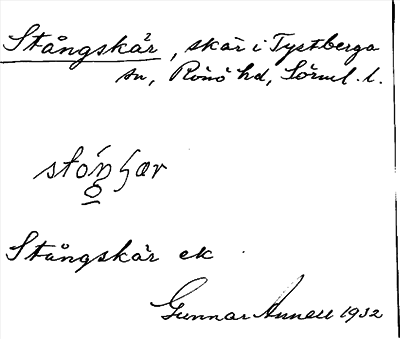 Stångskär, skär i Tystberga
sn, Rönö hd, Sörml. l.
Stångskär ek
Gunnar Annell 1932